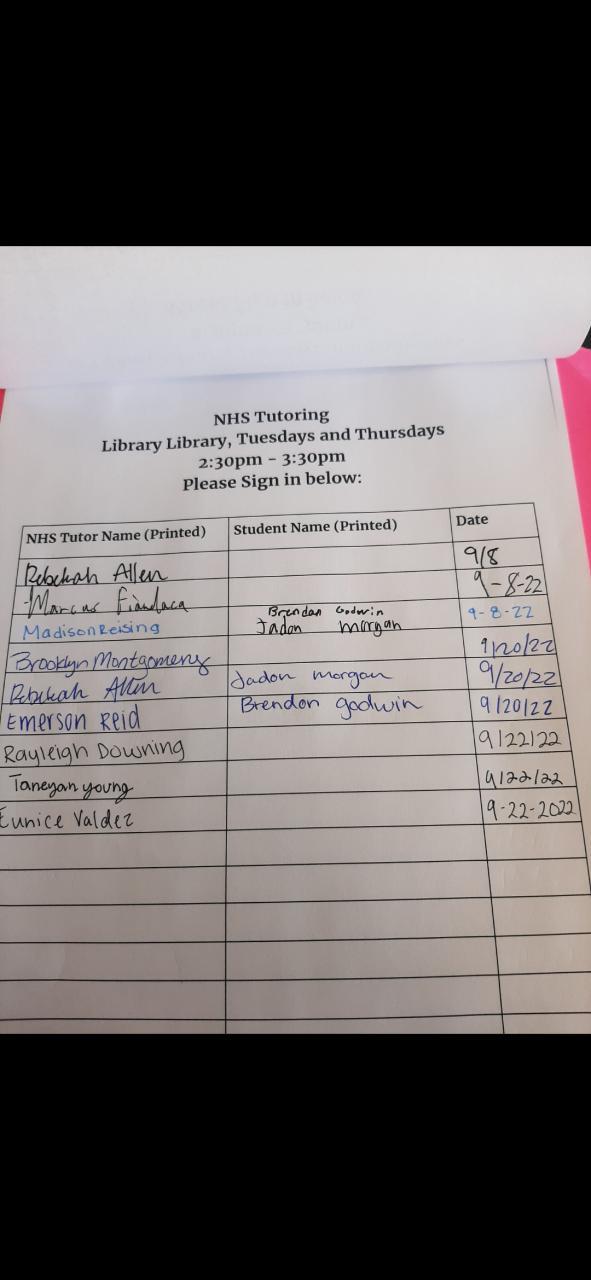 NHS Tutoring
Library Library, Tuesdays and Thursdays
2:30pm - 3:30pm
Please Sign in below:
NHS Tutor Name (Printed) Student Name (Printed) Date
Rebekah Allen 9/8
Marcus Fiandaca 9-8-22
Brendan Godwin
Madison Reising Jadon morgan 9-8-22
Brooklyn Montgomery 9/20/22
Rebekah Allen Jadon morgan 9/20/22
Emerson Reid Brendon godwin 9/20/22
Rayleigh Downing 9/22/22
Taneyan young 9/22/22
Eunice Valdez 9-22-2022